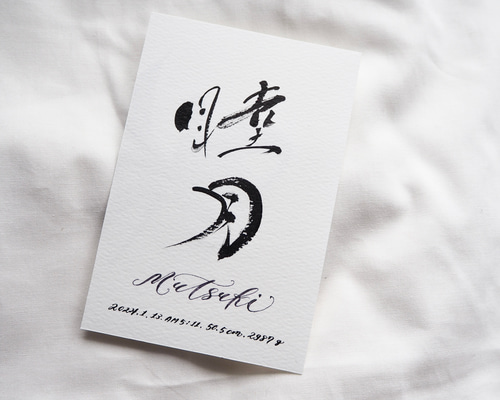 睦
月
Mutsuki
2024.1.13.AM5:11.50.5cm.2987g